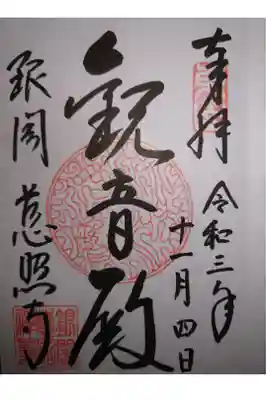 奉拝
令和三年
十一月四日
観音殿
銀閣 慈照寺